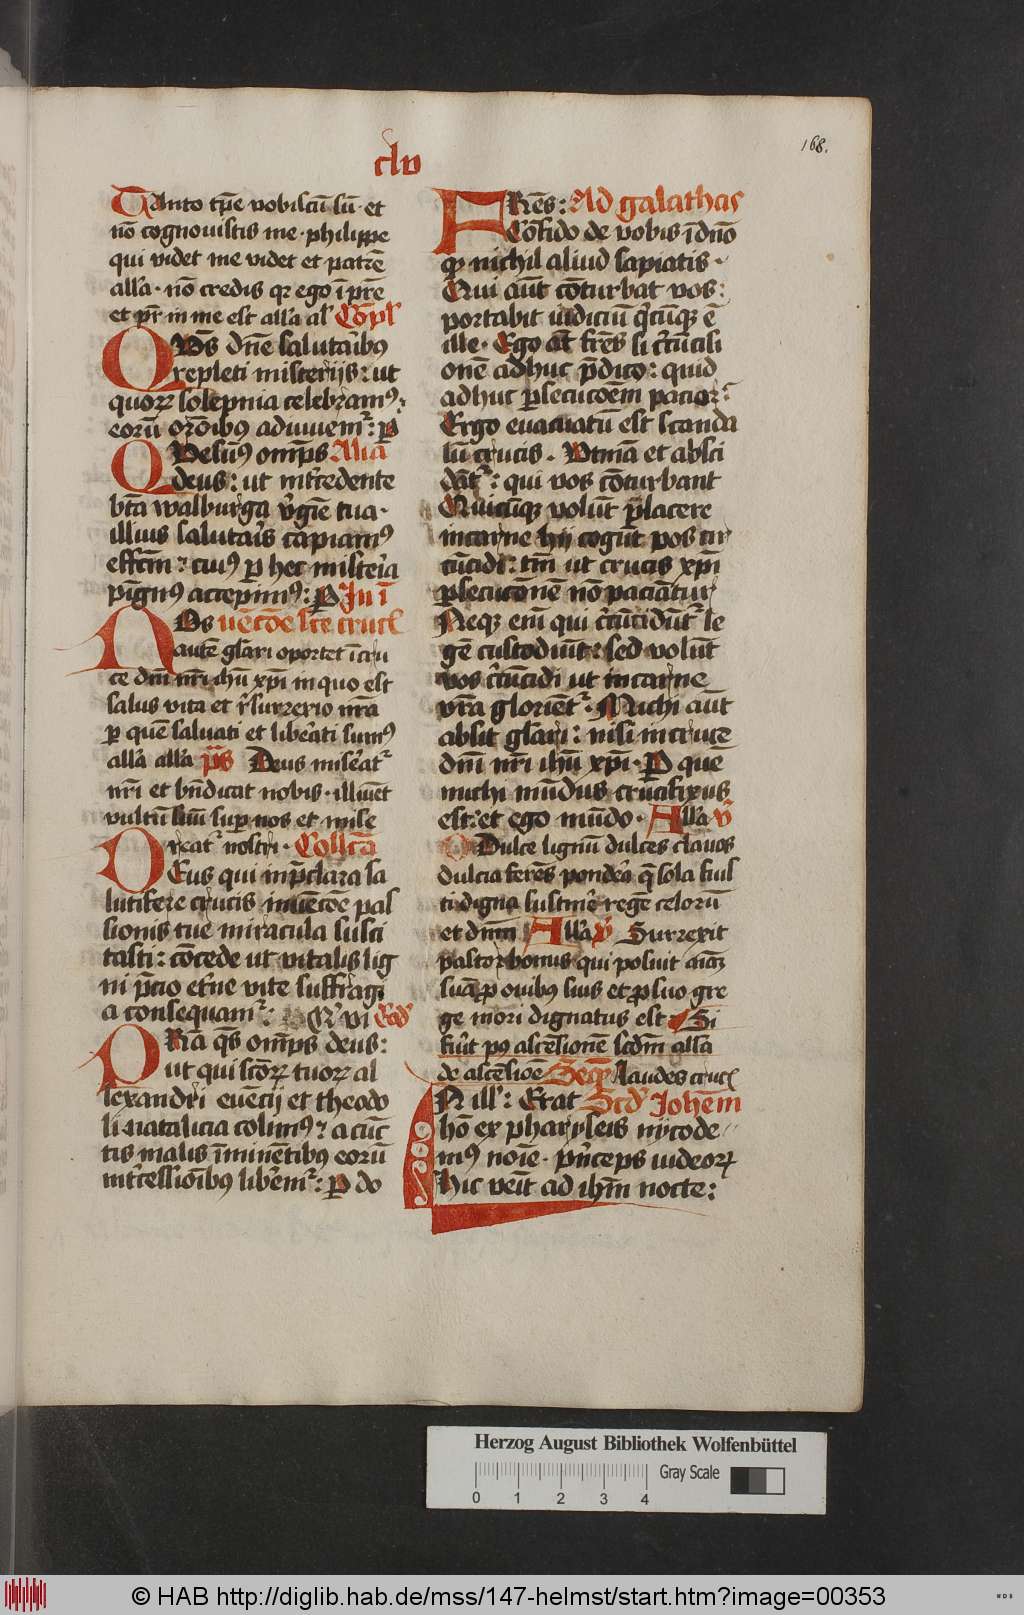 168.
clv
TAnto tp̄e vobiscū sū · et
nō cognouistis me · philippe
qui videt me videt et patrē
all'a · nō credis qr ego ī p̄re
et pr̄ in me est all'a al' Cōpl'
QVs dn̄e salutaībꝯ
repleti misterijs : ut
quorꝝ solepnia celebramꝯ :
eorū orōibꝯ adiuuemr : ꝑ
QVesūꝯ omps Alia
deus : ut int'cedente
bt̄a walburga v'gīe tua ·
illius salutar̄s capiamꝯ
effcm̄ : cuiꝯ ꝑ hec misteria
pignꝯ accepimꝯ : ꝑ In ī
NOs uētōe scē cruc
autē glāri oportet ī cru
ce dn̄i nr̄i ihū xp̄i in quo est
salus vita et r'surrexio nr̄a
ꝑ quē saluati et liberati sumꝯ
all'a all'a p̄s Deus miseatr
nr̄i et bn̄dicat nobis · illuīet
vultū suū suꝑ nos et mise
reatr nostri · Collcā
DEus qui in p̄clara sa
lutifere crucis inuētōe pas
sionis tue miracula susci
tasti : cōcede ut vitalis lig
ni p̄cio et'ne vite suffragi
a consequamr : N' vi Scd'
PRīa qs omps deus :
ut qui sc̄orꝝ tuorꝝ al
lexandri euētij et theodo
li natalicia colimꝯ : a cūc
tis malis ī minētibꝯ eorū
int'cessiōibꝯ liberemr : ꝑ do
FRēs : Ad galathas
Cōfido de vobis ī dn̄o
qꝫ nichil aliud sapiatis ·
Qui aūt cōturbat vos :
portabit iudiciū q'cūqꝫ ē
ille · Ego āt frēs si c'cūcisi
onē adhuc p̄dico : quid
adhuc ꝑsecucōem pacior ·
Ergo euacuatū est scanda
lū crucis . Vtinā et absci
dāt' : qui vos cōturbant
Quicūqꝫ volūt placere
in carne hij cogūt vos cir
cūcidi : tm̄ ut crucis xp̄i
ꝑsecuconē nō paciātur
Neqꝫ enī qui c'cūcidūt' le
gē custodiūt : sed volūt
vos c'cūcidi ut in carne
vr̄a gloriēt' · Michi aūt
absit glāri : nisi in cruce
dn̄i nr̄i ihū xp̄i · ꝑ quē
michi mūdus crucifixus
est : et ego mūdo · All'a v'
O Dulce lignū dulces clauos
dulcia ferēs pondera q̄ sola fuis
ti digna sustinere regē celorū
et dn̄m All'a v' Surrexit
pastor bonus qui posuit aiāꝫ
suā ꝓ ouibꝯ suis et ꝓ suo gre
ge mori dignatus est Si
fūit pꝯ ascēsionē scdm̄ all'a
de ascēsiōe Seq̄ Laudes cruc
IN ill' : Erat Scd' Johem̄
hō ex phariseis nycode
mꝯ noīe · p'nceps iudeorꝝ
Hic veīt ad ihm̄ nocte :
Herzog August Bibliothek Wolfenbüttel
Gray Scale
0 1 2 3 4
© HAB http://diglib.hab.de/mss/147-helmst/start.htm?image=00353